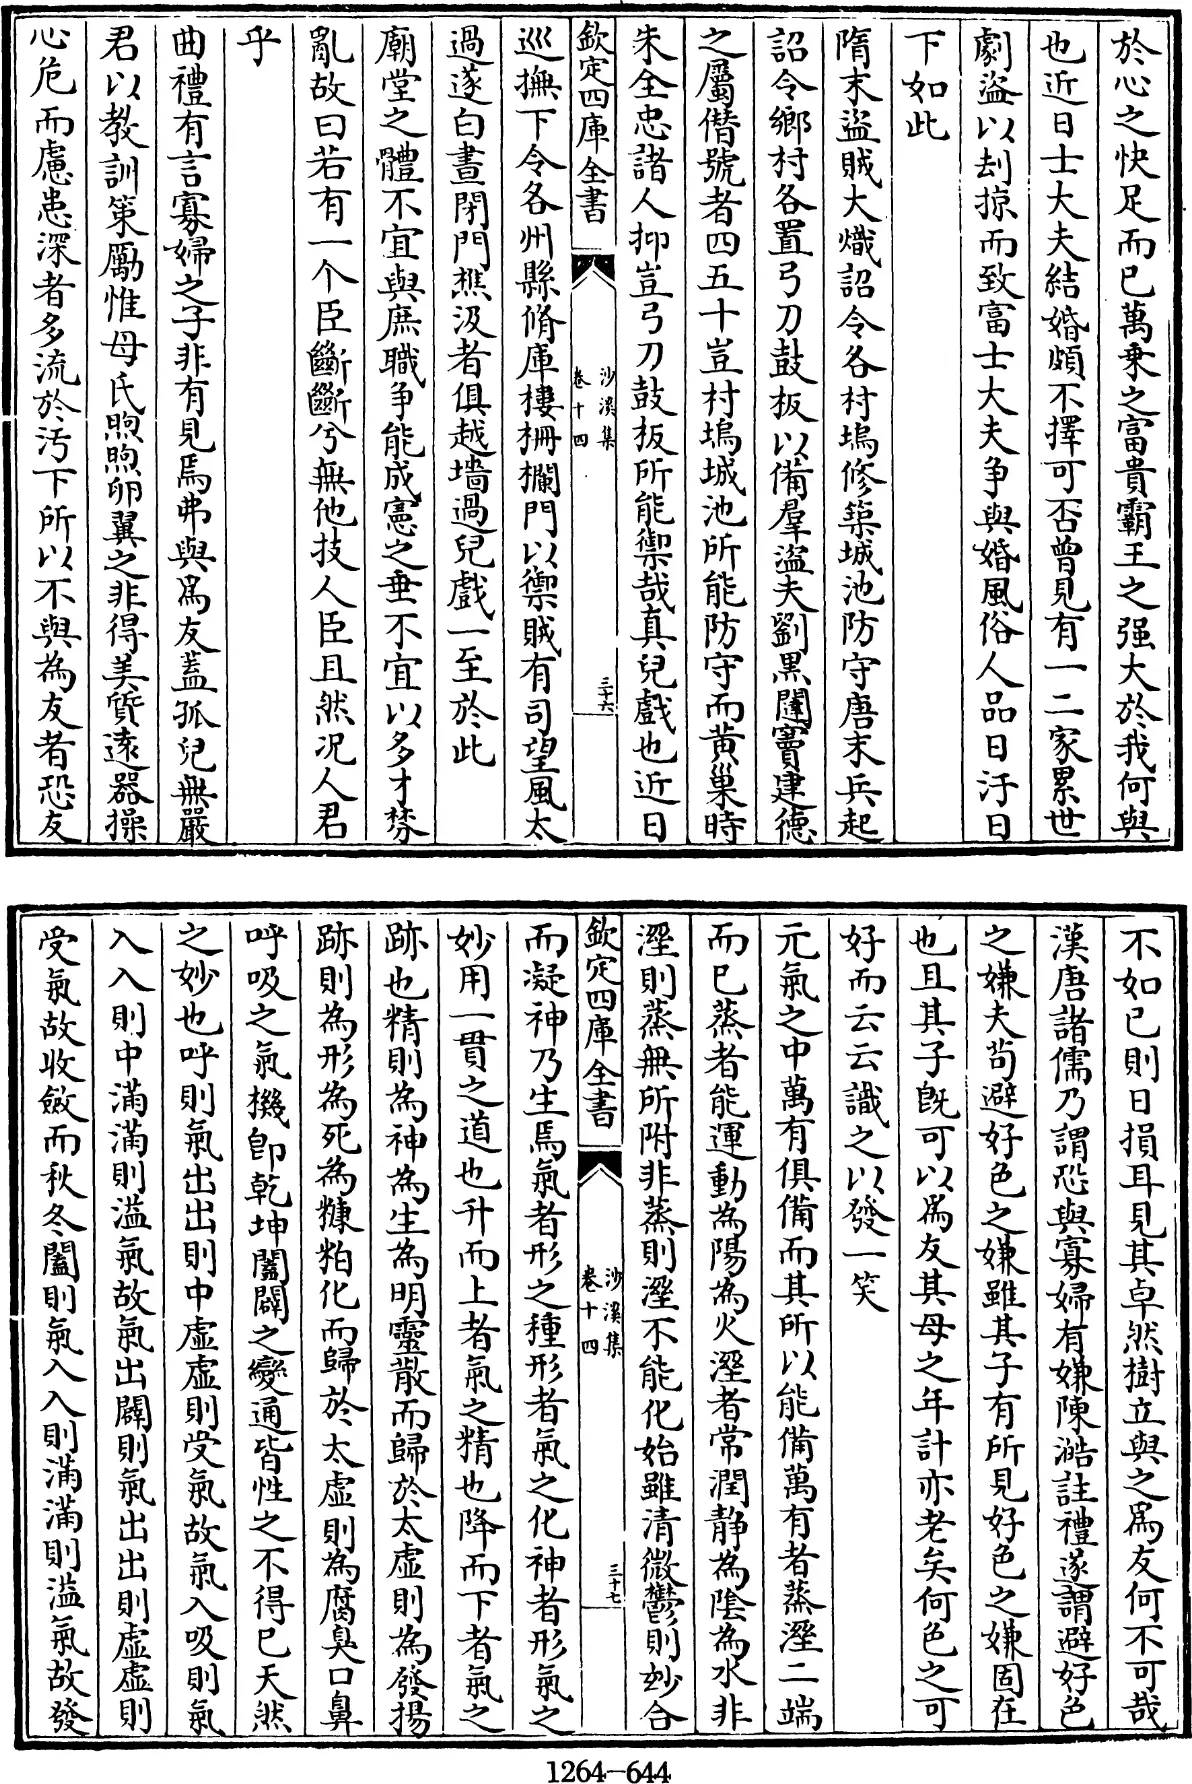 於心之快足而已萬乗之富貴霸王之强大於我何與
也近日士大夫結婚頗不擇可否曾見有一二家累世
劇盜以刦掠而致富士大夫争與婚風俗人品日汙日
下如此
隋末盜賊大熾詔令各村塢修築城池防守唐末兵起
詔令鄉村各置弓刀鼓板以備羣盜夫劉黒闥竇建徳
之屬僣號者四五十豈村塢城池所能防守而黄巢時
朱全忠諸人抑豈弓刀鼓扳所能禦哉真兒戲也近日
欽定四庫全書
沙溪集
卷十四
三十六
巡撫下令各州縣脩庫樓柵欄門以禦賊有司望風太
過遂白晝閉門樵汲者俱越墻過兒戲一至於此
廟堂之體不宜與庶職争能成憲之垂不宜以多才棼
亂故曰若有一个臣斷斷兮無他技人臣且然况人君
乎
曲禮有言寡婦之子非有見焉弗與爲友蓋孤兒無嚴
君以教訓策厲惟母氏煦煦卵翼之非得美質逺器操
心危而慮患深者多流於汚下所以不與為友者恐友
不如已則日損耳見其卓然樹立與之爲友何不可哉
漢唐諸儒乃謂恐與寡婦有嫌陳澔註禮遂謂避好色
之嫌夫苟避好色之嫌雖其子有所見好色之嫌固在
也且其子既可以爲友其母之年計亦老矣何色之可
好而云云識之以發一笑
元氣之中萬有俱備而其所以能備萬有者蒸溼二端
而已蒸者能運動為陽為火溼者常潤静為陰為水非
溼則蒸無所附非蒸則溼不能化始雖清微鬱則妙合
欽定四庫全書
沙溪集
卷十四
三十七
而凝神乃生焉氣者形之種形者氣之化神者形氣之
妙用一貫之道也升而上者氣之精也降而下者氣之
跡也精則為神為生為明靈散而歸於太虚則為發揚
跡則為形為死為糠粕化而歸於太虚則為腐臭口鼻
呼吸之氣機即乾坤闔闢之變通皆性之不得已天然
之妙也呼則氣出出則中虚虚則受氣故氣入吸則氣
入入則中滿滿則溢氣故氣出闢則氣出出則虚虚則
受氣故收斂而秋冬闔則氣入入則滿滿則溢氣故發
1264—644